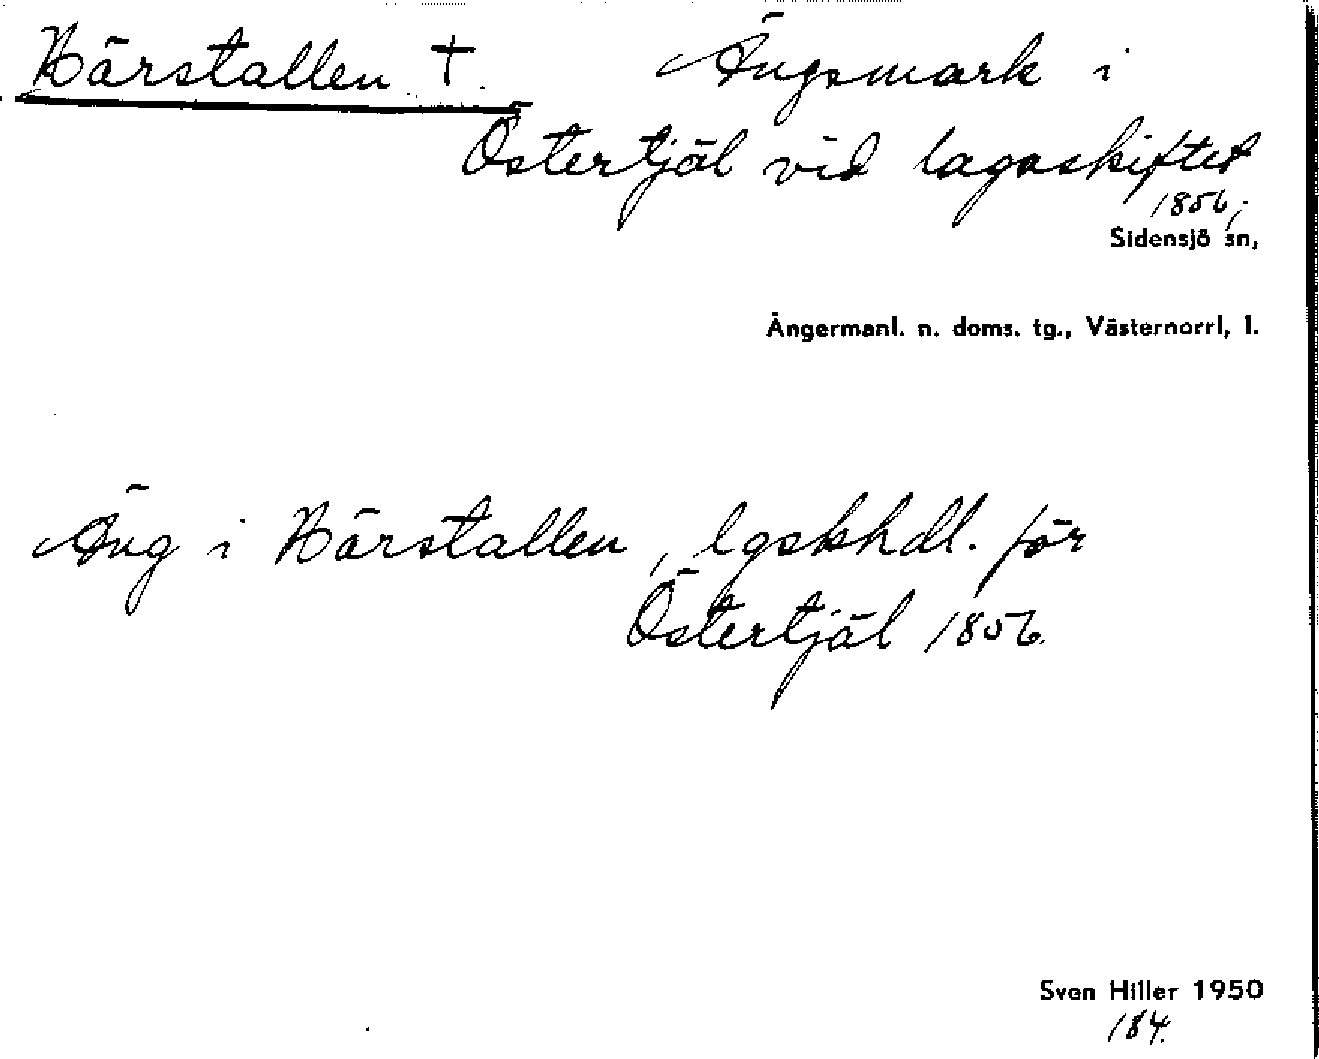 Härstallen †. Ängsmark i
Östertjäl vid lagaskiftet
1856,.
Sidensjö sn,
Ångermanl. n. doms. tg., Västernorrl, l.
Äng i Härstallen, lgskhdl. för
Östertjäl 1856.
Sven Hiller 1950
184.